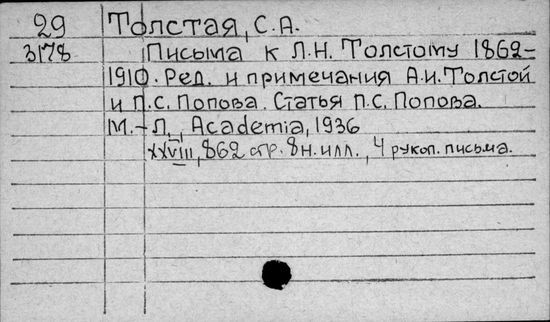 29 Толстая, С.А.
3178 Письма к Л.Н. Толстому 1862-
1910. Ред. и примечания А.И. Толстой
и П.С. Попова. Статья П.С. Попова.
М.-Л., Academia, 1936
XXVIII, 862 стр. 8 н. илл., 4 рукоп. письма.